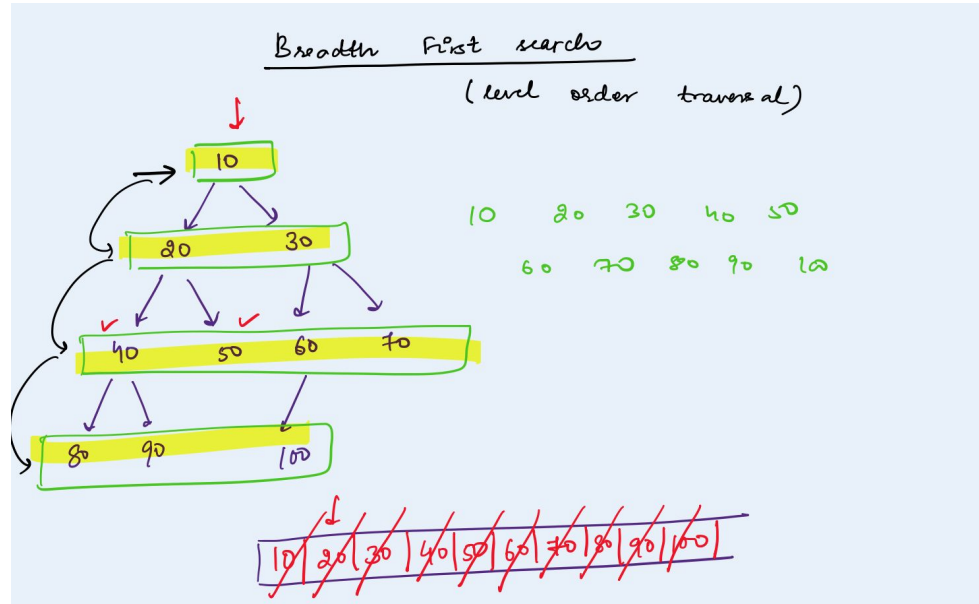 Breadth First search
(level order traversal)
10
20 30
40 50 60 70
80 90 100
10 20 30 40 50
60 70 80 90 100
10 20 30 40 50 60 70 80 90 100